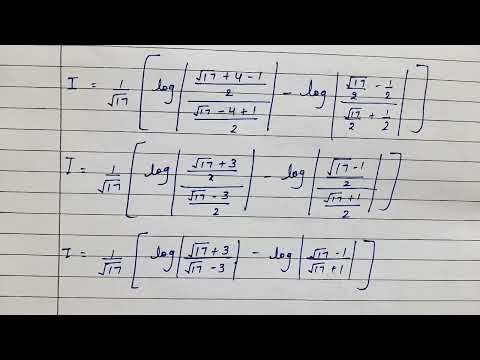 I = 1/√17 [ log | ((√17 + 4 - 1)/2) / ((√17 - 4 + 1)/2) | - log | (√17/2 - 1/2) / (√17/2 + 1/2) | ]
I = 1/√17 [ log | ((√17 + 3)/2) / ((√17 - 3)/2) | - log | ((√17 - 1)/2) / ((√17 + 1)/2) | ]
I = 1/√17 [ log | (√17 + 3)/(√17 - 3) | - log | (√17 - 1)/(√17 + 1) | ]